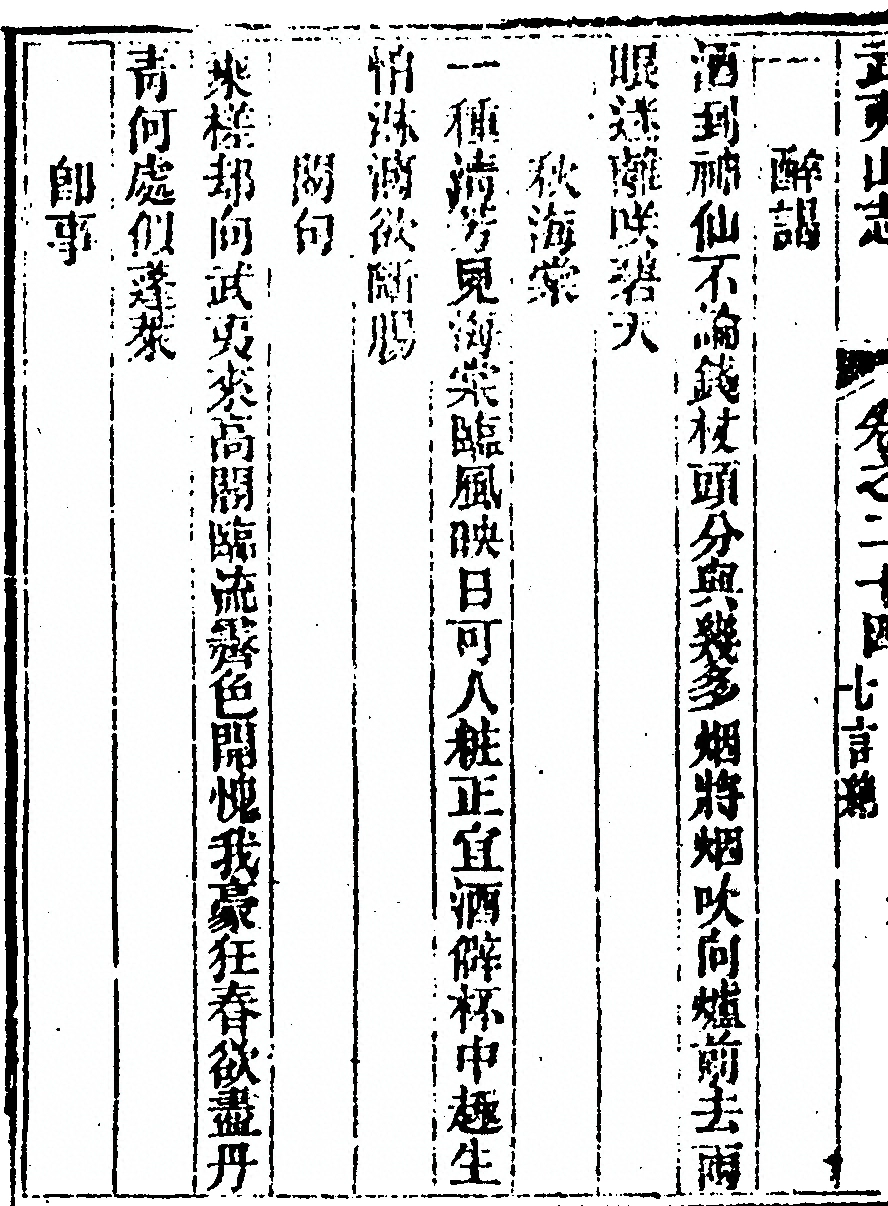 武夷山志 卷之二十四 七言絶
醉謁
酒到神仙不論錢杖頭分與幾多烟將烟吹向爐前去兩
眼迷離咲碧天
秋海棠
一種清芳見海棠臨風映日可人粧正宜酒僻杯中趣生
怕淋漓欲斷腸
閣句
來槎却向武夷來高閣臨流霽色開愧我豪狂春欲盡丹
青何處似蓬萊
卽事